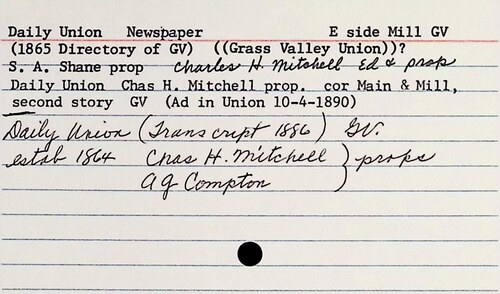 Daily Union Newspaper E side Mill GV
(1865 Directory of GV) ((Grass Valley Union))?
S. A. Shane prop Charles H. Mitchell Ed & prop
Daily Union Chas H. Mitchell prop. cor Main & Mill,
second story GV (Ad in Union 10-4-1890)
Daily Union (Transcript 1886) GV.
estab 1864 Chas H. Mitchell ) props
A G Compton )